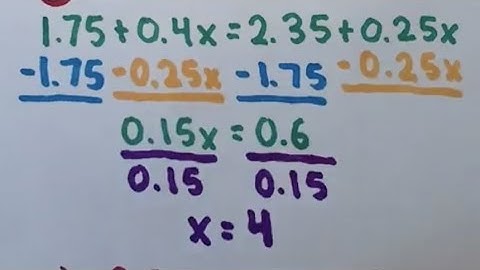 1.75+0.4x=2.35+0.25x
-1.75 -0.25x -1.75 -0.25x
0.15x=0.6
0.15 0.15
x=4